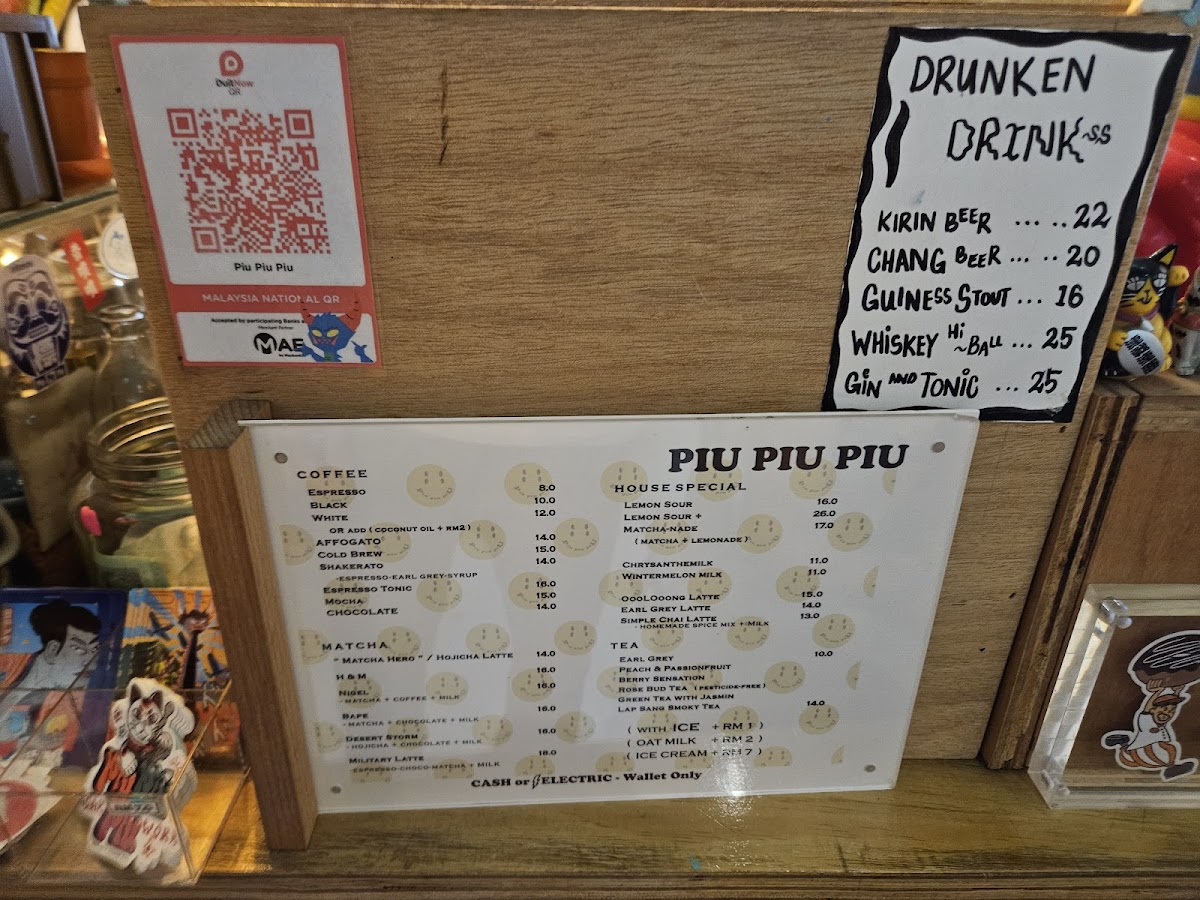 DuitNow
QR
Piu Piu Piu
MALAYSIA NATIONAL QR
Accepted by participating Banks
Merchant Partner
MAE
DRUNKEN
DRINK~S,S
KIRIN BEER ... .. 22
CHANG BEER ... .. 20
GUINESS STOUT ... 16
WHISKEY Hi ~BALL ... 25
GiN AND TONIC ... 25
PIU PIU PIU
COFFEE
ESPRESSO 8.0
BLACK 10.0
WHITE 12.0
OR ADD ( COCONUT OIL + RM2 )
AFFOGATO 14.0
COLD BREW 15.0
SHAKERATO 14.0
-ESPRESSO-EARL GREY-SYRUP
ESPRESSO TONIC 16.0
MOCHA 15.0
CHOCOLATE 14.0
MATCHA
" MATCHA HERO " / HOJICHA LATTE 14.0
H & M 16.0
NIGEL 16.0
- MATCHA + COFFEE + MILK
BAPE 16.0
- MATCHA + CHOCOLATE + MILK
DESERT STORM 18.0
- HOJICHA + CHOCOLATE + MILK
MILITARY LATTE 18.0
-ESPRESSO-CHOCO-MATCHA + MILK
HOUSE SPECIAL
LEMON SOUR 16.0
LEMON SOUR + 26.0
MATCHA-NADE 17.0
( MATCHA + LEMONADE )
CHRYSANTHEMILK 11.0
WINTERMELON MILK 11.0
OOOLOOONG LATTE 15.0
EARL GREY LATTE 14.0
SIMPLE CHAI LATTE 13.0
- HOMEMADE SPICE MIX + MILK
TEA
EARL GREY 10.0
PEACH & PASSIONFRUIT
BERRY SENSATION
ROSE BUD TEA ( PESTICIDE-FREE )
GREEN TEA WITH JASMIN
LAP SANG SMOKY TEA 14.0
( WITH ICE + RM 1 )
( OAT MILK + RM 2 )
( ICE CREAM + RM 7 )
CASH or ELECTRIC - Wallet Only